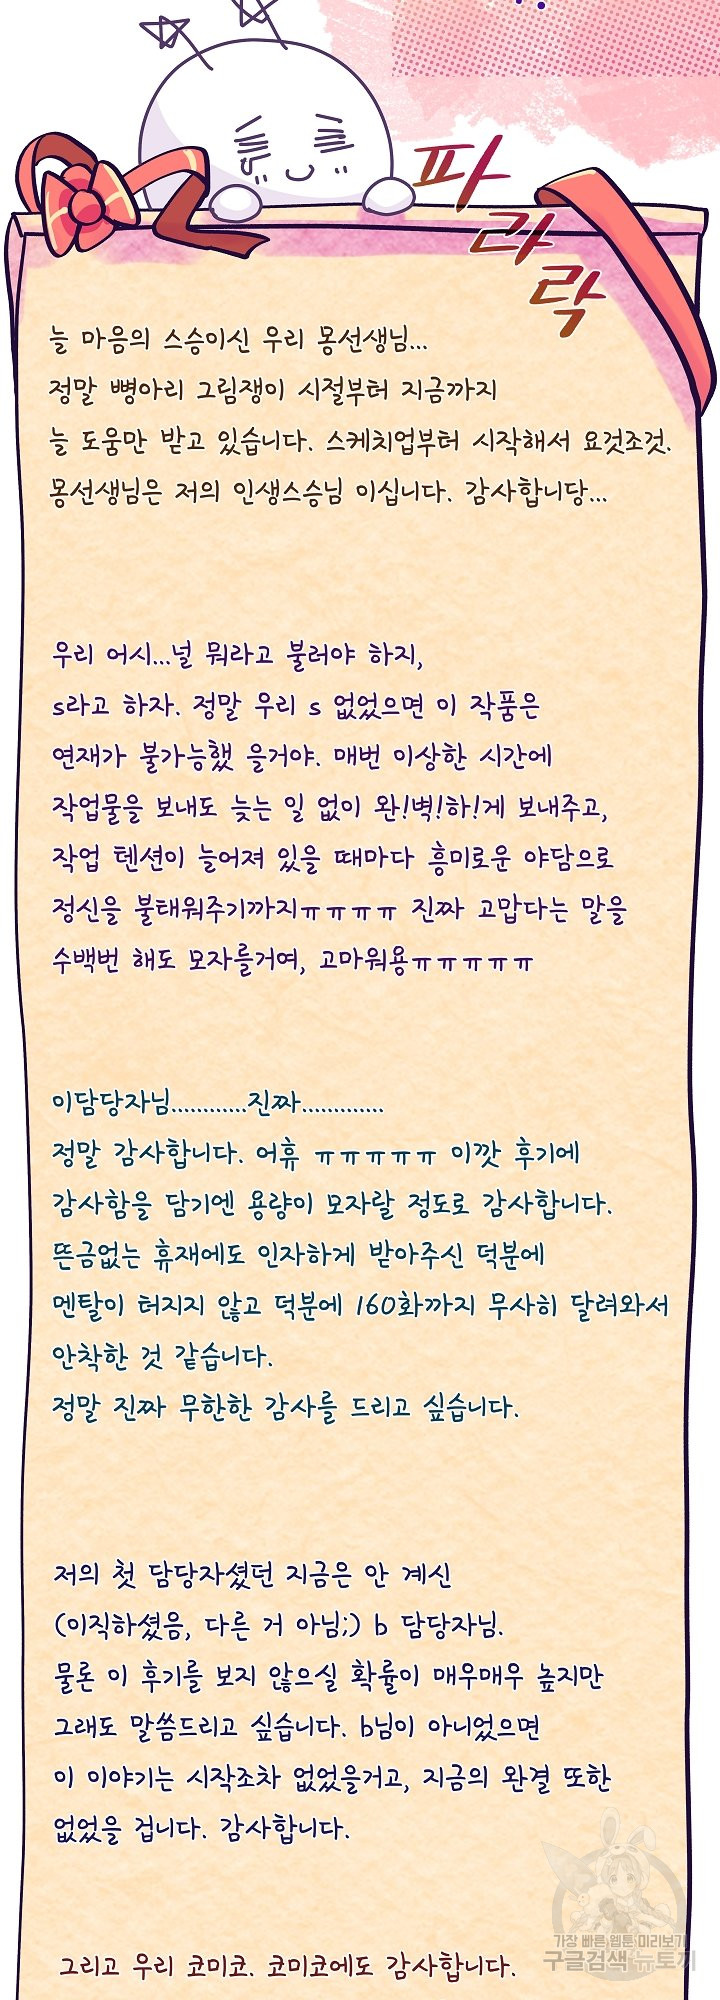 파라락
늘 마음의 스승이신 우리 몽선생님...
정말 뼝아리 그림쟁이 시절부터 지금까지
늘 도움만 받고 있습니다. 스케치업부터 시작해서 요것조것.
몽선생님은 저의 인생스승님 이십니다. 감사합니당...
우리 어시...널 뭐라고 불러야 하지,
s라고 하자. 정말 우리 s 없었으면 이 작품은
연재가 불가능했 을거야. 매번 이상한 시간에
작업물을 보내도 늦는 일 없이 완!벽!하!게 보내주고,
작업 텐션이 늘어져 있을 때마다 흥미로운 야담으로
정신을 불태워주기까지ㅠㅠㅠㅠ 진짜 고맙다는 말을
수백번 해도 모자를거여, 고마워용ㅠㅠㅠㅠㅠ
이담당자님............진짜.............
정말 감사합니다. 어휴 ㅠㅠㅠㅠㅠ 이깟 후기에
감사함을 담기엔 용량이 모자랄 정도로 감사합니다.
뜬금없는 휴재에도 인자하게 받아주신 덕분에
멘탈이 터지지 않고 덕분에 160화까지 무사히 달려와서
안착한 것 같습니다.
정말 진짜 무한한 감사를 드리고 싶습니다.
저의 첫 담당자셨던 지금은 안 계신
(이직하셨음, 다른 거 아님;) b 담당자님.
물론 이 후기를 보지 않으실 확률이 매우매우 높지만
그래도 말씀드리고 싶습니다. b님이 아니었으면
이 이야기는 시작조차 없었을거고, 지금의 완결 또한
없었을 겁니다. 감사합니다.
그리고 우리 코미코. 코미코에도 감사합니다.
가장 빠른 웹툰 미리보기
구글검색 뉴토끼